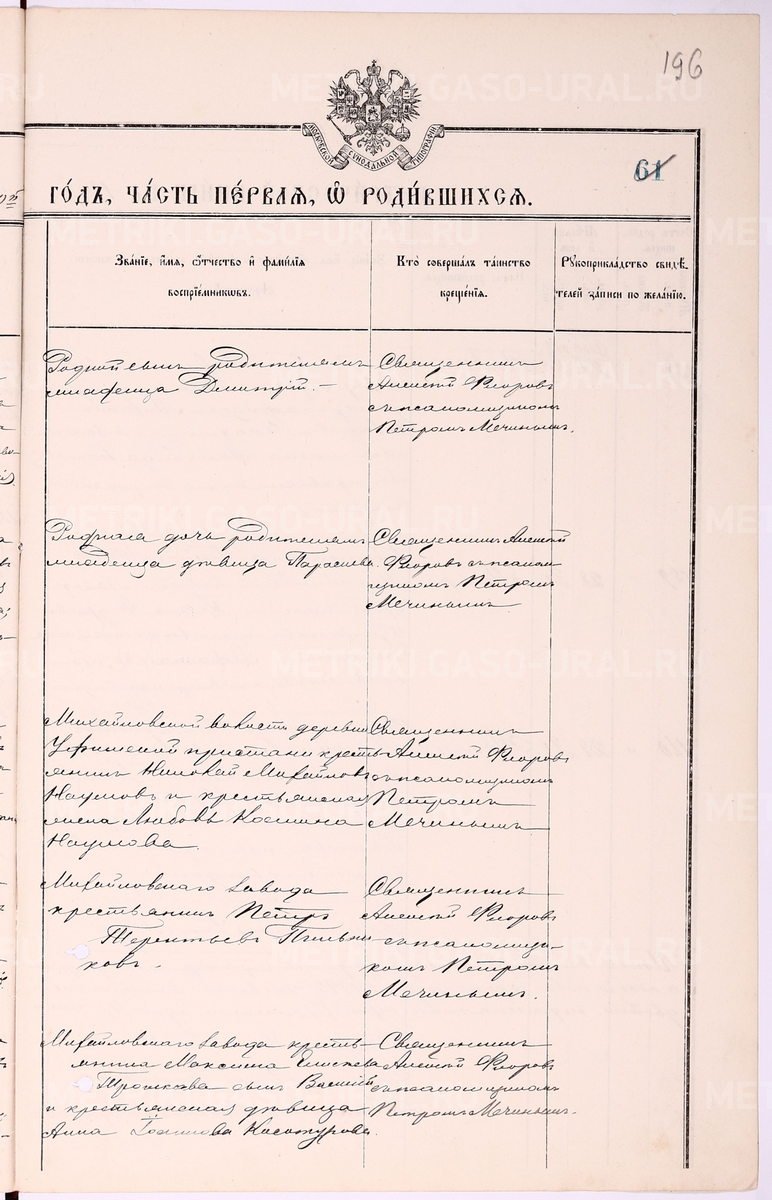 196
МОСКОВСКОЙ СѴНОДАЛЬНОЙ ТИПОГРАФІИ
61
ГОДЪ, ЧАСТЬ ПЕРВАЯ, Ѡ РОДИВШИХСЯ.
Званіе, имя, отчество и фамилія
воспріемниковъ.
Кто совершалъ таинство
крещенія.
Рукоприкладство свидѣ-
телей записи по желанію.
Родной сынъ родителямъ
младенца Дмитрій. —
Священникъ
Алексѣй Флоровъ
съ псаломщикомъ
Петромъ Мечинымъ.
Родная дочь родителямъ
младенца дѣвица Параскева.
Священникъ Алексѣй
Флоровъ съ псалом-
щикомъ Петромъ
Мечинымъ
Михайловской волости деревни
Уфимской пристани кресть-
янинъ Николай Михайловъ
Наумовъ и крестьянская
жена Любовь Космина
Наумова.
Священникъ
Алексѣй Флоровъ
съ псаломщикомъ
Петромъ
Мечинымъ
Михайловскаго завода
крестьянинъ Петръ
Терентьевъ
ковъ.
Священникъ
Алексѣй Флоровъ
съ псаломщи-
комъ Петромъ
Мечинымъ.
Михайловскаго завода кресть-
янина Максима
сынъ Василій
и крестьянская дѣвица
Анна
Священникъ
Алексѣй Флоровъ
съ псаломщикомъ
Петромъ Мечинымъ.
METRIKI.GASO-URAL.RU